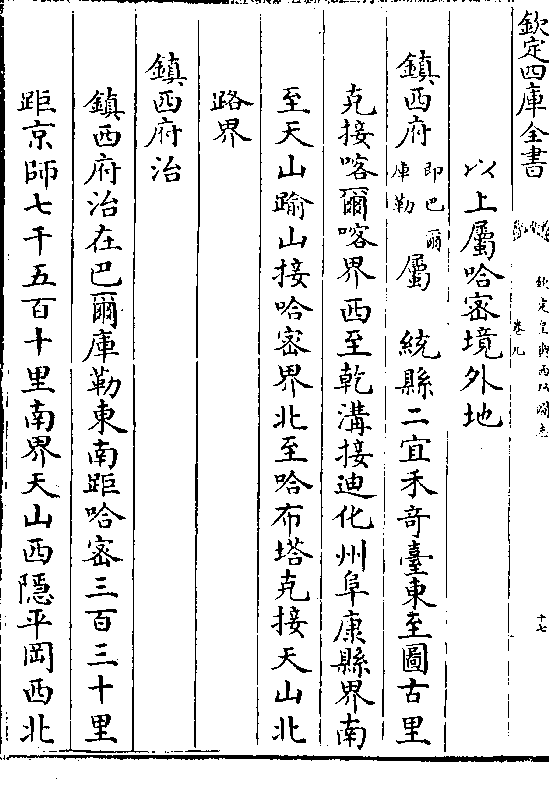 欽定四庫全書
欽定皇輿西域圖志
卷九
十七
以上屬哈密境外地
鎮西府即巴爾庫勒屬　統縣二宜禾奇臺東至圖古里
克接喀爾喀界西至乾溝接迪化州阜康縣界南
至天山踰山接哈密界北至哈布塔克接天山北
路界
鎮西府治
鎮西府治在巴爾庫勒東南距哈密三百三十里
距京師七千五百十里南界天山西隱平岡西北